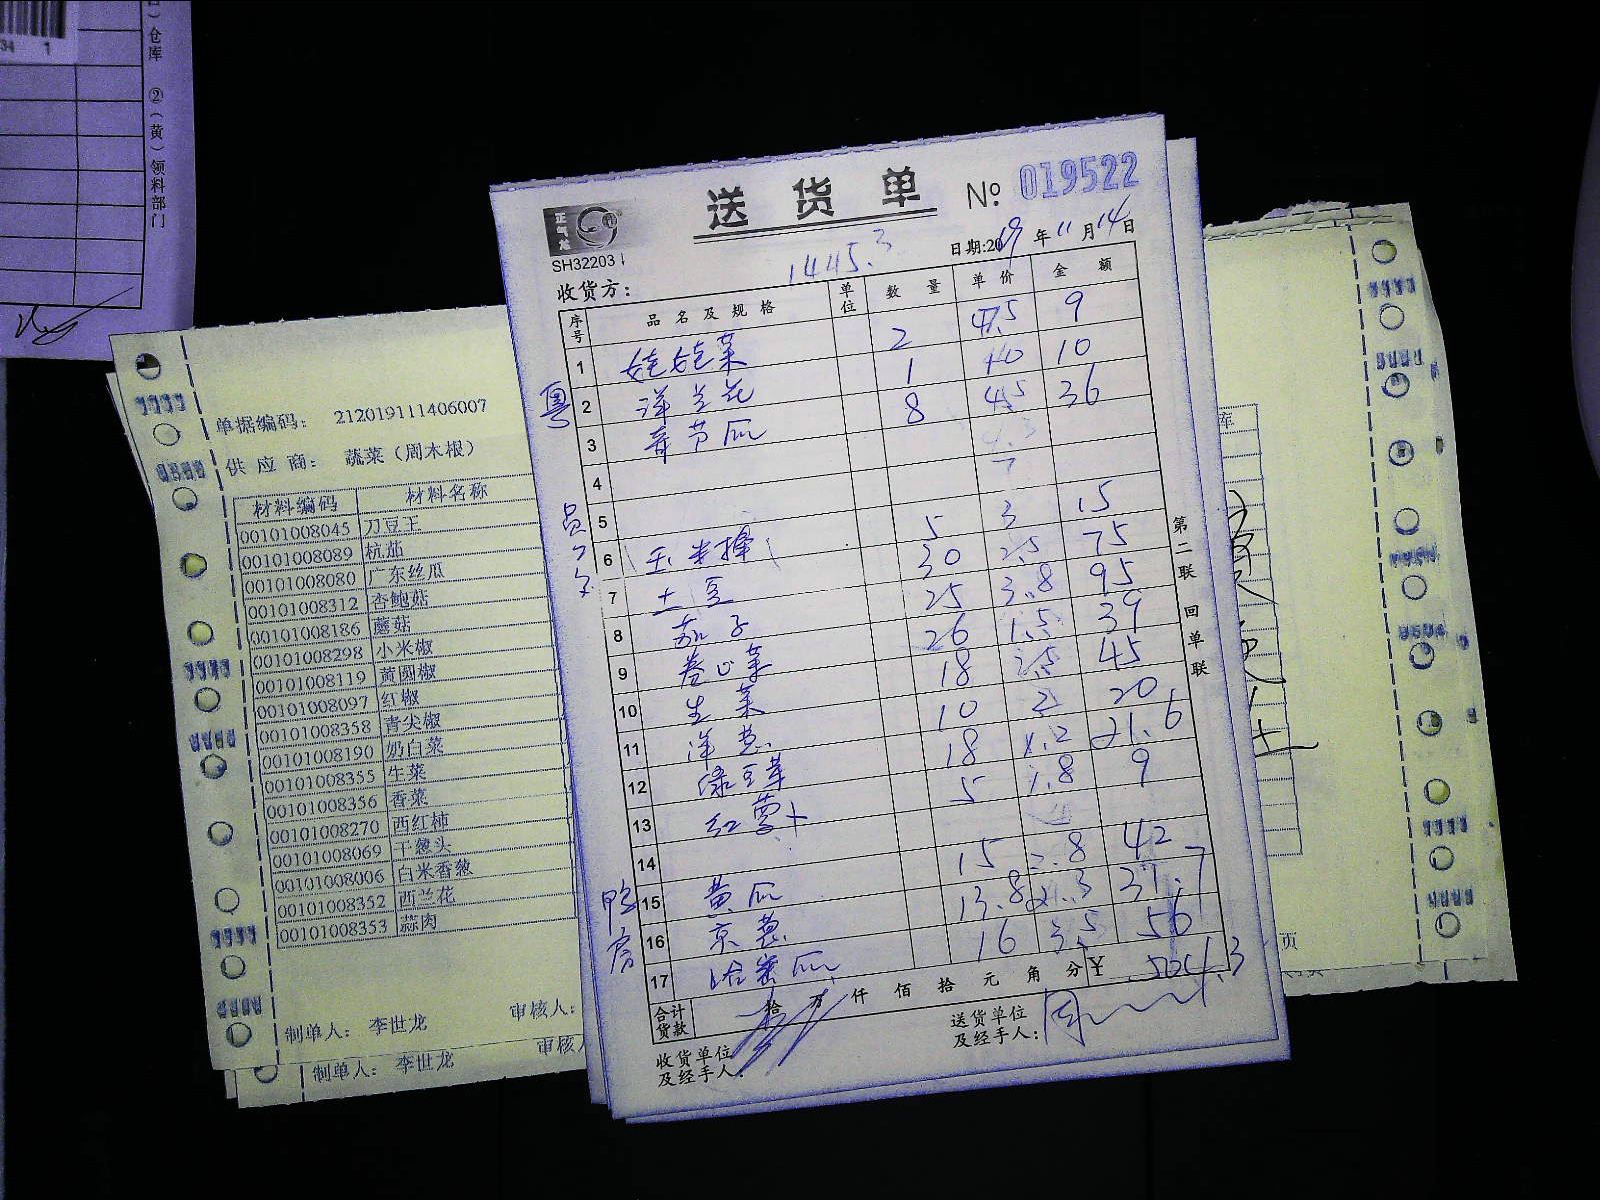 仓库 ②(黄)领料部门
34 1
送货单 № 019522
正气龙
SH32203
日期:2019年11月14日
1445.3
收货方:
序号 品名及规格 单位 数量 单价 金额
粤
1 娃娃菜 2 4.5 9
2 洋兰花 1 10 10
3 奇节瓜 8 4.5 36
4
5
员工
6 玉米棒 5 3 15
7 土豆 30 2.5 75
8 茄子 25 3.8 95
9 卷心菜 26 1.5 39
10 生菜 18 2.5 45
11 洋葱 10 2 20
12 绿豆芽 18 1.2 21.6
13 红萝卜 5 1.8 9
14
鸭房
15 黄瓜 15 2.8 42
16 京葱 13.8 2.3 31.7
17 哈蜜瓜 16 3.5 56
合计货款 拾 万 仟 佰 拾 元 角 分 ¥ 504.3
收货单位及经手人:
送货单位及经手人:
第二联 回单联
单据编码: 212019111406007
供应商: 蔬菜(周木根)
材料编码 材料名称
00101008045 刀豆王
00101008089 杭茄
00101008080 广东丝瓜
00101008312 杏鲍菇
00101008186 蘑菇
00101008298 小米椒
00101008119 黄圆椒
00101008097 红椒
00101008358 青尖椒
00101008190 奶白菜
00101008355 生菜
00101008356 香菜
00101008270 西红柿
00101008069 干葱头
00101008006 白米香葱
00101008352 西兰花
00101008353 蒜肉
制单人: 李世龙 审核人:
制单人: 李世龙 审核人
库
页